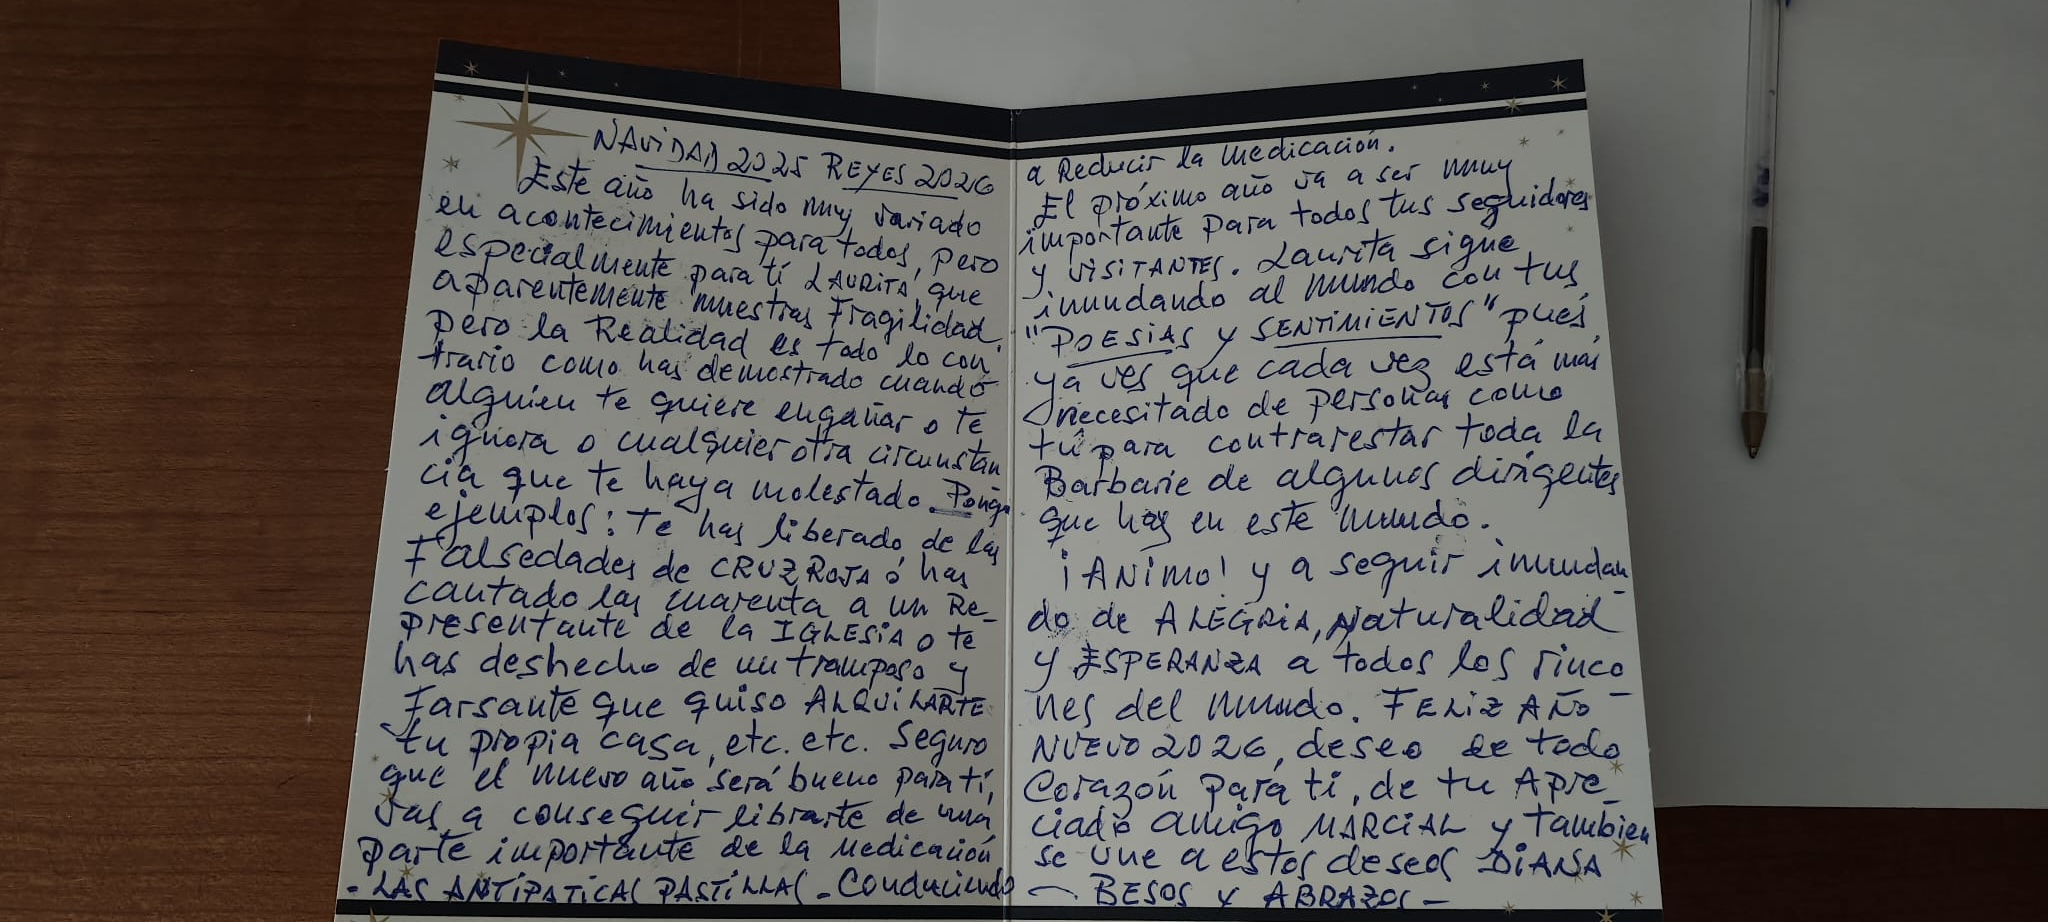 NAVIDAD 2025 REYES 2026
Este año ha sido muy variado
en acontecimientos para todos, pero
especialmente para tí LAURITA, que
aparentemente muestras Fragilidad
pero la Realidad es todo lo con
trario como has demostrado cuando
alguien te quiere engañar o te
ignora o cualquier otra circunstan
cia que te haya molestado. Pongo
ejemplos: Te has liberado de las
Falsedades de CRUZ ROJA ó has
cantado las cuarenta a un Re-
presentante de la IGLESIA o te
has deshecho de un tramposo y
Farsante que quiso ALQUILARTE
tu propia casa, etc. etc. Seguro
que el nuevo año será bueno para tí,
vas a conseguir librarte de una
parte importante de la Medicación
- LAS ANTIPATICAS PASTILLAS - Conduciendo
a Reducir la medicación.
El próximo año va a ser muy
importante para todos tus seguidores
y VISITANTES. Laurita sigue
inundando al mundo con tus
"POESIAS y SENTIMIENTOS" pues
ya ves que cada vez está más
necesitado de personas como
tú para contrarestar toda la
Barbarie de algunos dirigentes
que hay en este mundo.
¡ANIMO! y a seguir inundan-
do de ALEGRIA, Naturalidad
y ESPERANZA a todos los rinco-
nes del mundo. FELIZ AÑO
NUEVO 2026, deseo de todo
Corazón para ti, de tu Apre-
ciado amigo MARCIAL y también
se une a estos deseos DIANA
- BESOS Y ABRAZOS -